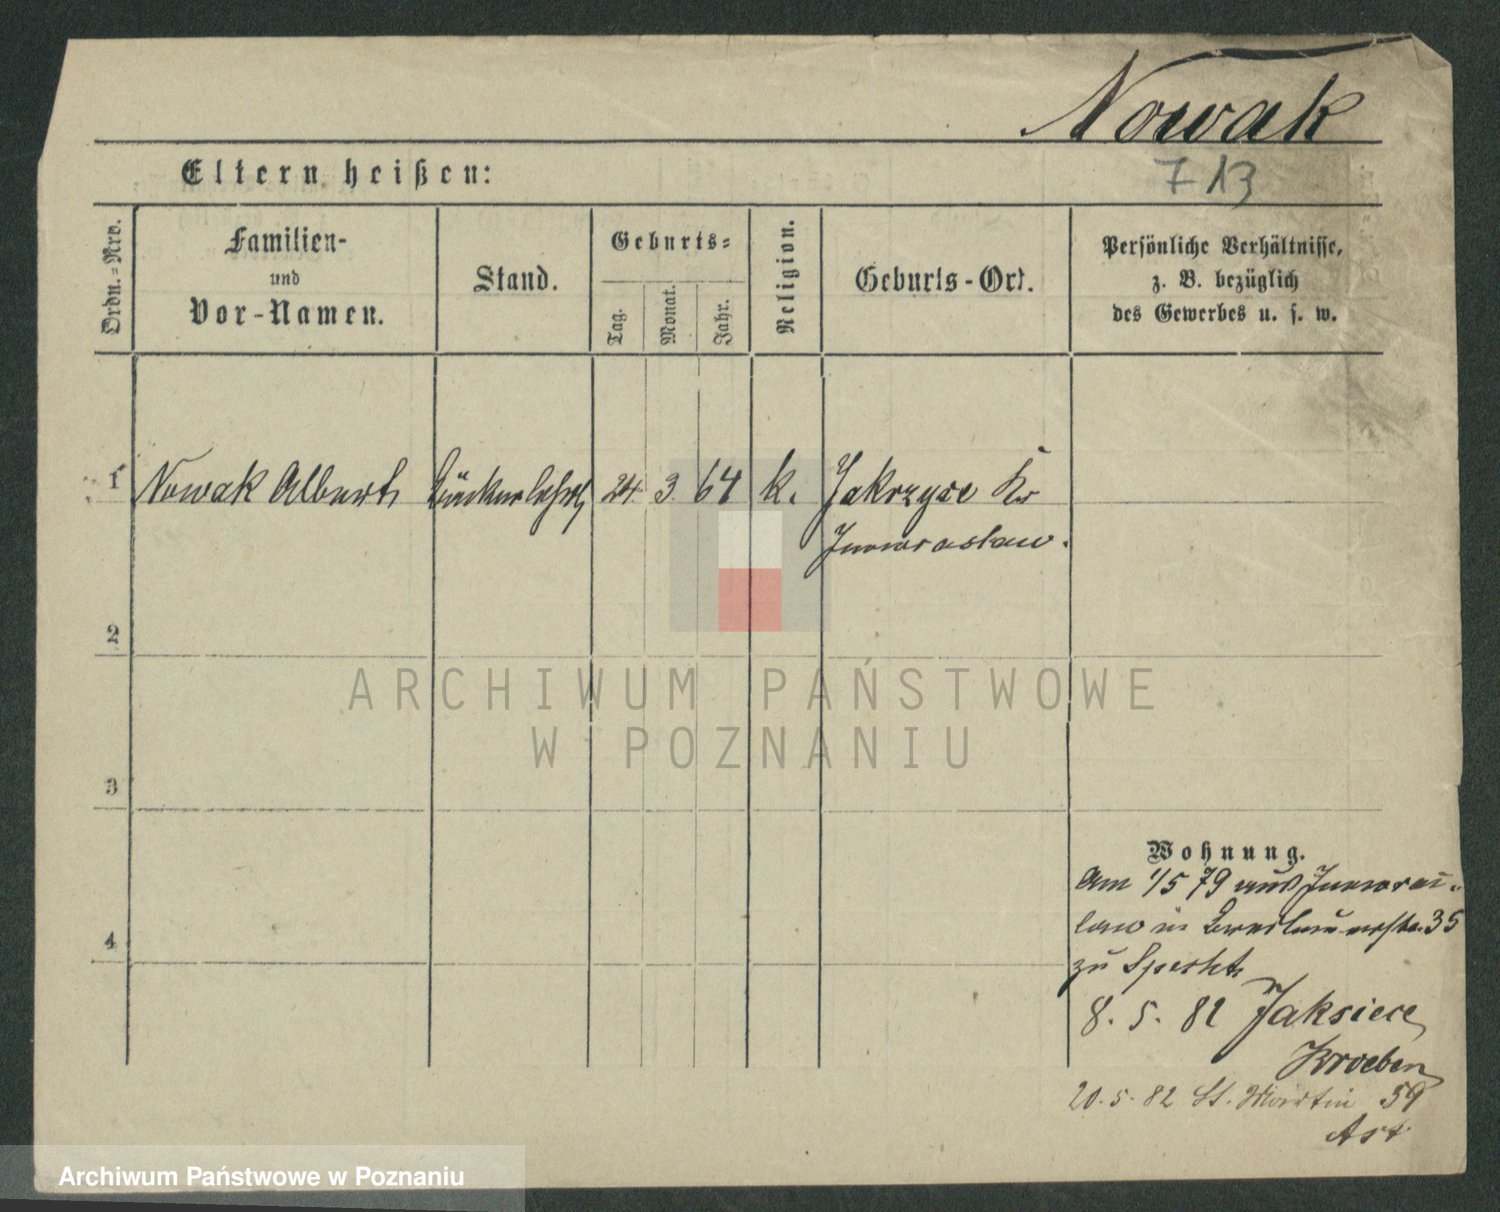 Nowak
713
Eltern heißen:
Ordn.-Nro.
Familien-
und
Vor-Namen.
Stand.
Geburts-
Tag.
Monat.
Jahr.
Religion.
Geburts-Ort.
Persönliche Verhältnisse,
z. B. bezüglich
des Gewerbes u. s. w.
1 Nowak Albert Bäckerlehrl 24 3 64 k. Jakrzyce Kr
Inowraslaw.
2
ARCHIWUM PAŃSTWOWE
W POZNANIU
3
Wohnung.
Am 1/5 79 aus Inowraz-
law in 35
4
zu Specht
8. 5. 82 Jaksiece
Kroeben
20. 5. 82 St. Martin 59
Archiwum Państwowe w Poznaniu